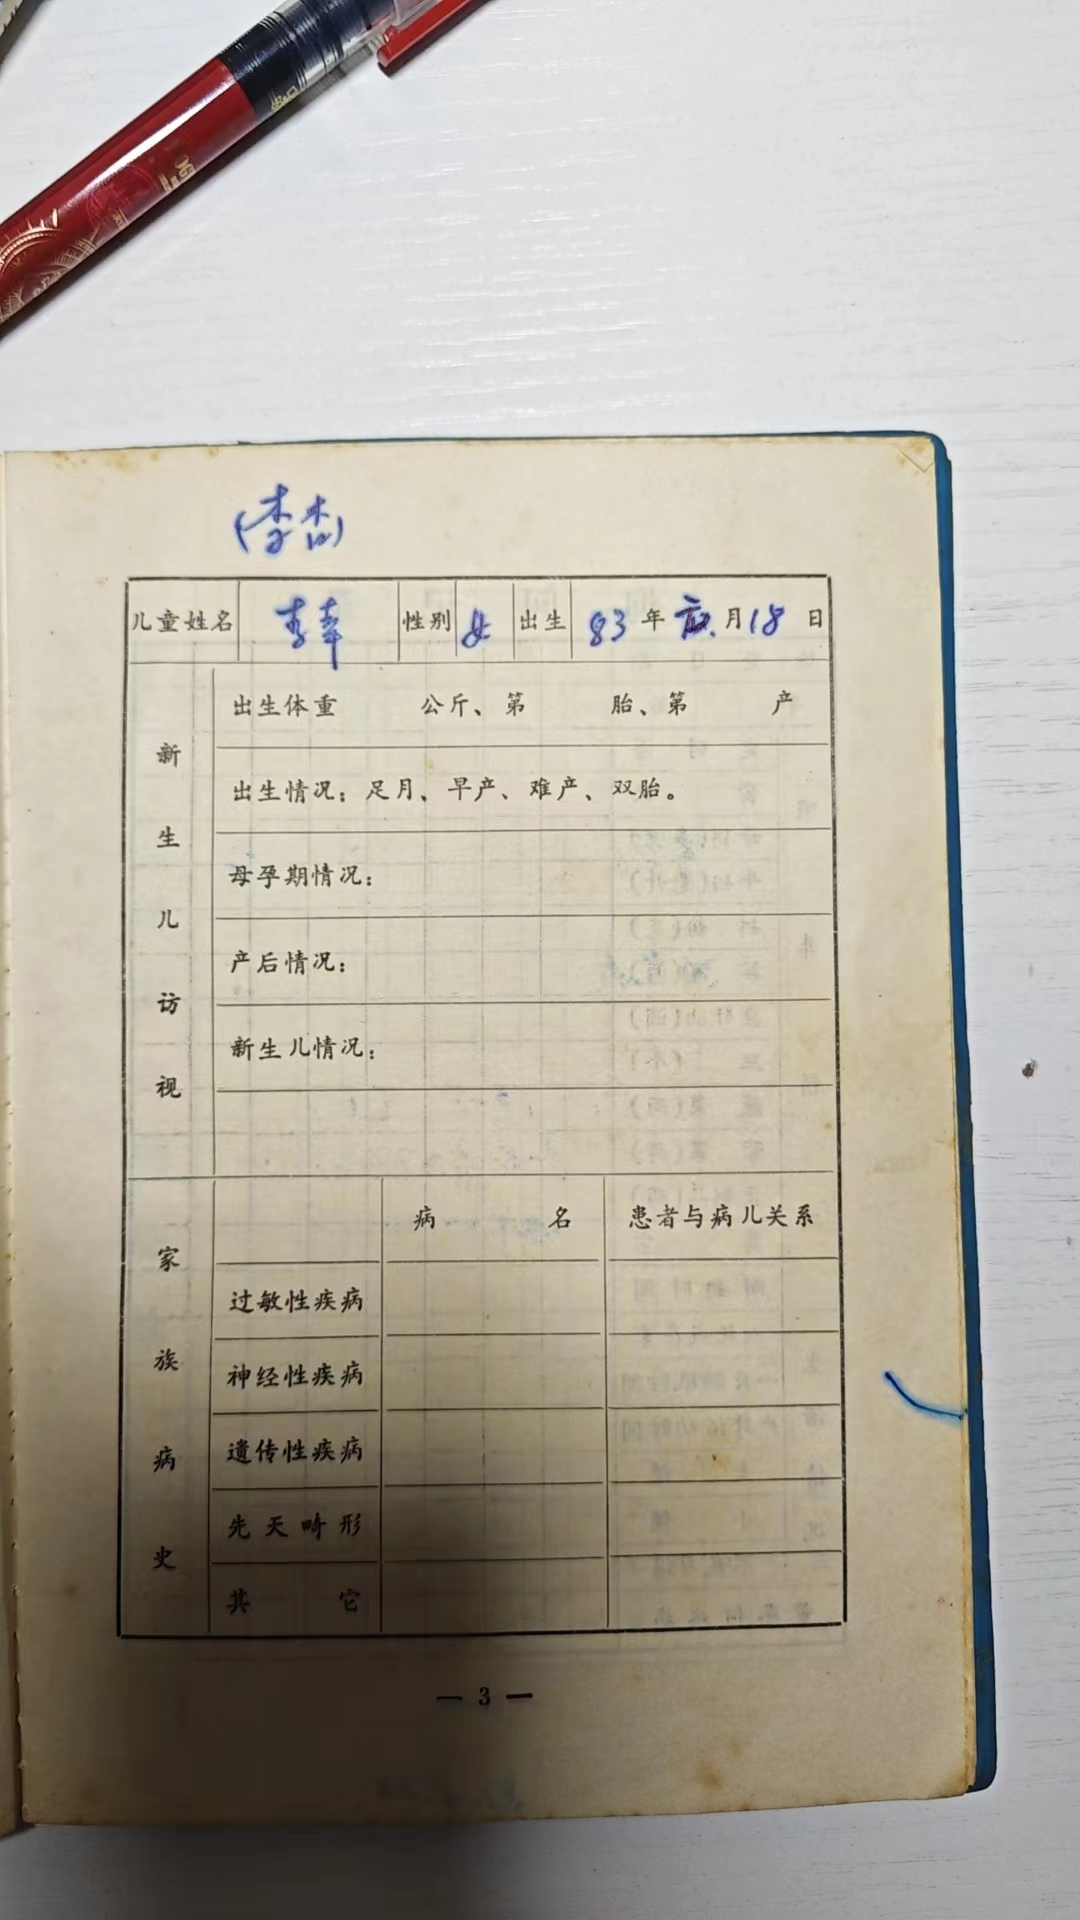 (李杏)
儿童姓名 李幸 性别 女 出生 83年 月18日
新生儿访视
出生体重 公斤、第 胎、第 产
出生情况:足月、早产、难产、双胎。
母孕期情况:
产后情况:
新生儿情况:
家族病史
病名 患者与病儿关系
过敏性疾病
神经性疾病
遗传性疾病
先天畸形
其它
— 3 —